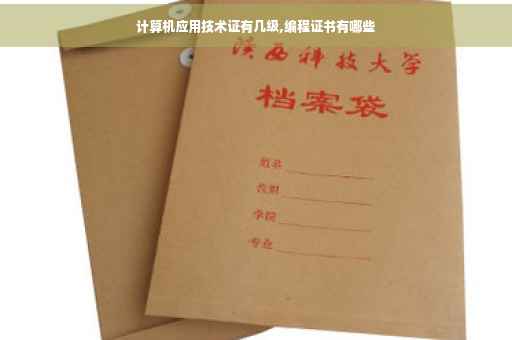 计算机应用技术证有几级,编程证书有哪些
陕西科技大学
档案袋
姓名
学院
专业